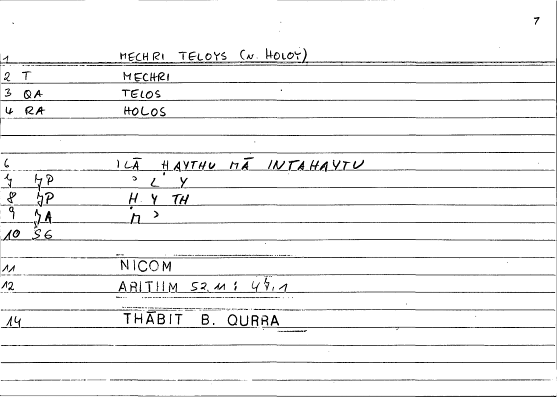 7
1 MECHRI TELOYS (N. HOLOY)
2 T MECHRI
3 QA TELOS
4 RA HOLOS
6 ILĀ ḤAYTHU MĀ INTAHAYTU
ʾ L Y
8 Ḥ Y TH
9 M ʾ
10 SG
11 NICOM
12 ARITIIM 52.11 :
14 THĀBIT B. QURRA